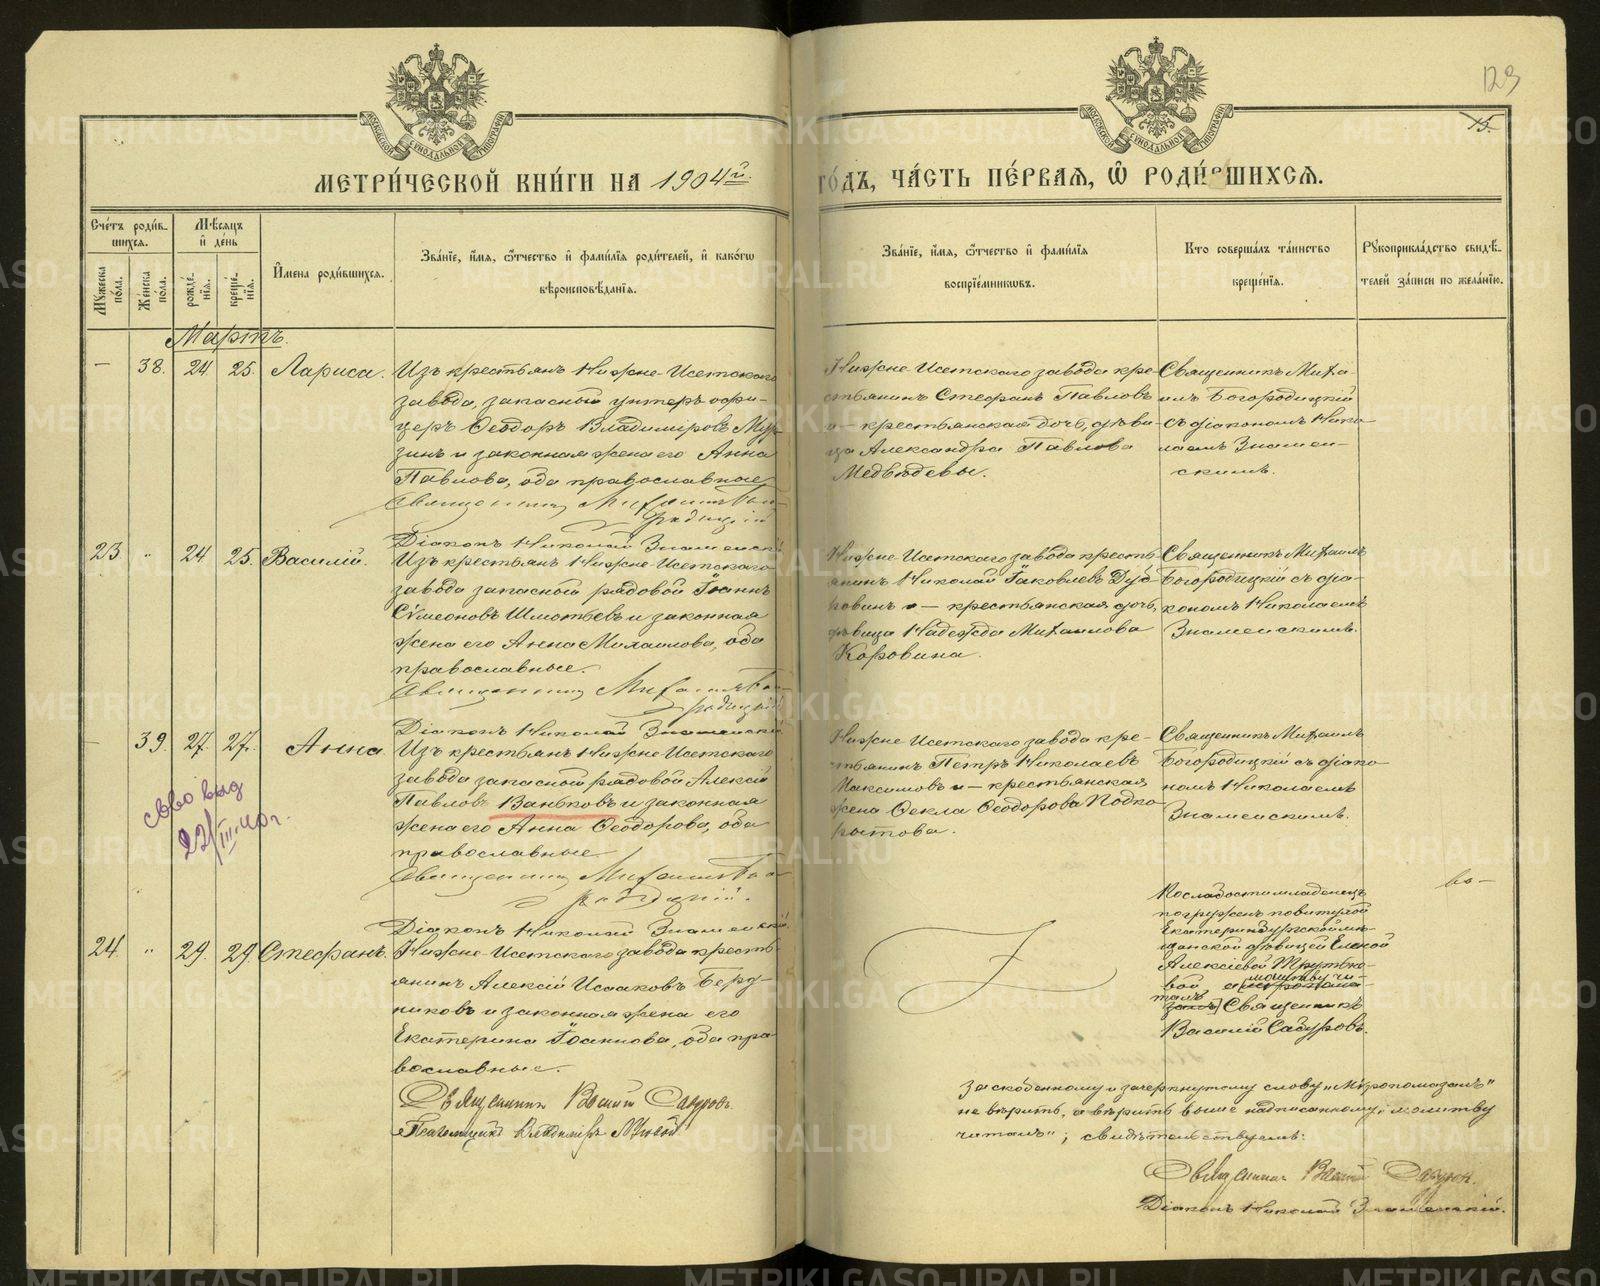 123
15.
МЕТРИ́ЧЕСКОЙ КНИ́ГИ НА 1904й.
ГО́ДЪ, ЧА́СТЬ ПЕ́РВАЯ, Ѽ РОДИ́ВШИХСЯ.
Сче́тъ роди́в-
шихся.
Му́жеска по́ла.
Же́нска по́ла.
Мѣ́сяцъ
и де́нь
рожде́-
нія.
креще́-
нія.
Имена родившихся.
Зва́ніе, и́мя, ѻ́тчество и фами́лія роди́телей, и како́гѡ
вѣроисповѣ́данія.
Зва́ніе, и́мя, ѻ́тчество и фами́лія
воспріе́мниковъ.
Кто соверша́лъ та́инство
креще́нія.
Рукоприкла́дство свидѣ́-
телей за́писи по жела́нію.
Мартъ.
— 38. 24. 25. Лариса.
Изъ крестьянъ Нижне-Исетскаго
завода, запасный унтеръ офи-
церъ Ѳеодоръ Владиміровъ Мур-
зинъ и законная жена его Анна
Павлова, оба православные
Священникъ Михаилъ Бого-
родицкій
Діаконъ Николай Знаменскій
Нижне Исетскаго завода кре-
стьянинъ Стефанъ Павловъ
и — крестьянская дочь, дѣви-
ца Александра Павлова
Медвѣдевы.
Священникъ Миха-
илъ Богородицкій
съ діакономъ Нико-
лаемъ Знамен-
скимъ.
23 " 24 25. Василій.
Изъ крестьянъ Нижне-Исетскаго
завода запасной рядовой Іоаннъ
Сѵмеоновъ и законная
жена его Анна Михаилова, оба
православные.
Священникъ Михаилъ Бого-
родицкій
Діаконъ Николай Знаменскій
Нижне-Исетскаго завода кресть-
янинъ Николай Іаковлевъ
и — крестьянская дочь,
дѣвица Надежда Михаилова
Коровина.
Священникъ Михаилъ
Богородицкій съ діа-
кономъ Николаемъ
Знаменскимъ.
— 39. 27. 27. Анна
св-во выд
22/III-40г.
Изъ крестьянъ Нижне-Исетскаго
завода запасной рядовой Алексій
Павловъ Ваньковъ и законная
жена его Анна Ѳеодорова, оба
православные
Священникъ Михаилъ Бого-
родицкій.
Діаконъ Николай Знаменскій
Нижне Исетскаго завода кре-
стьянинъ Петръ Николаевъ
Максимовъ и — крестьянская
жена Ѳекла Ѳеодорова Подко-
рытова.
Священникъ Михаилъ
Богородицкій съ діако-
номъ Николаемъ
Знаменскимъ.
24. " 29. 29. Стефанъ.
Нижне-Исетскаго завода кресть-
янинъ Алексій Исааковъ Берд-
никовъ и законная жена его
Екатерина Іоаннова, оба пра-
вославные.
Священникъ Василій Сабуровъ.
Псаломщикъ Владиміръ
По слабости младенецъ
погруженъ повитухой
Екатеринбургской мѣ-
щанской дѣвицей Еленой
Алексіевой
молитву чи-
талъ Священникъ
Василій Сабуровъ.
За скобленному и зачеркнутому слову „Мѵропомазалъ"
не вѣрить, а вѣрить выше надписанному: „молитву
читалъ"; свидѣтельствуемъ:
Священникъ Василій Сабуровъ.
Діаконъ Николай Знаменскій.